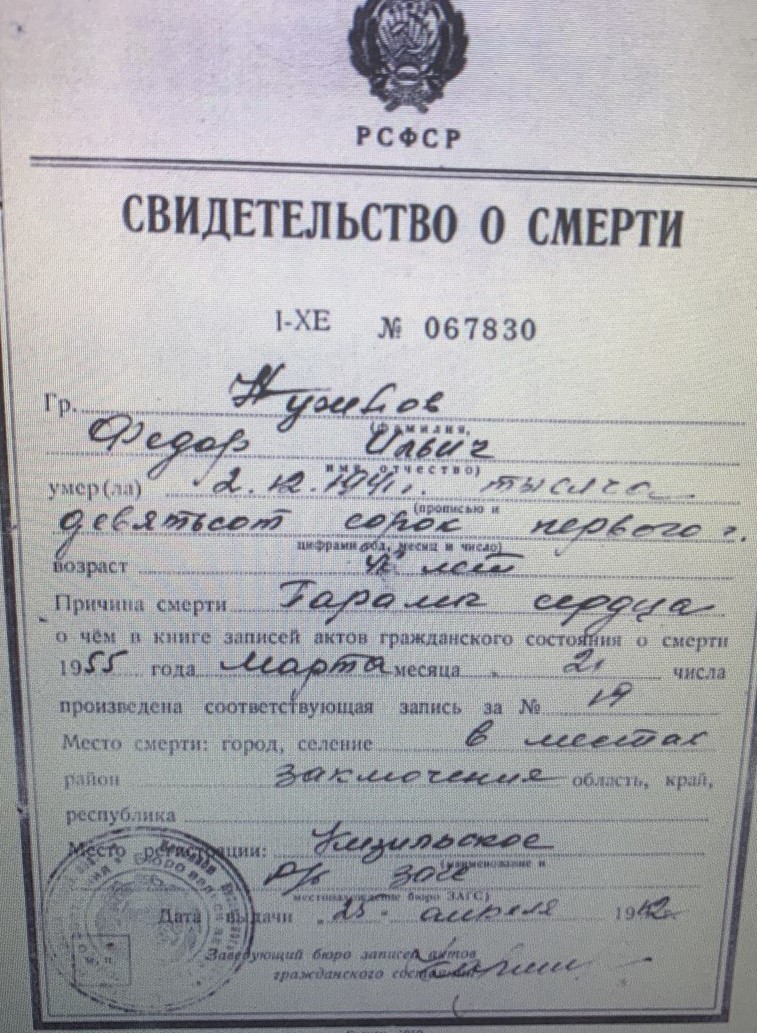 РСФСР
СВИДЕТЕЛЬСТВО О СМЕРТИ
I-ХЕ № 067830
Гр.
(фамилия,
Федор Ильич
имя, отчество)
умер(ла) 2.12.1941г. тысяча
(прописью и
девятьсот сорок первого г.
цифрами год, месяц и число)
возраст лет
Причина смерти Паралич сердца
о чём в книге записей актов гражданского состояния о смерти
1955 года Марта месяца 21 числа
произведена соответствующая запись за № 19
Место смерти: город, селение в местах
район заключения область, край,
республика
Место регистрации: Кизильское
(наименование и
р/б загс
местонахождение бюро ЗАГС)
Дата выдачи 25. апреля 19
М. П.
Заведующий бюро записей актов
гражданского состояния